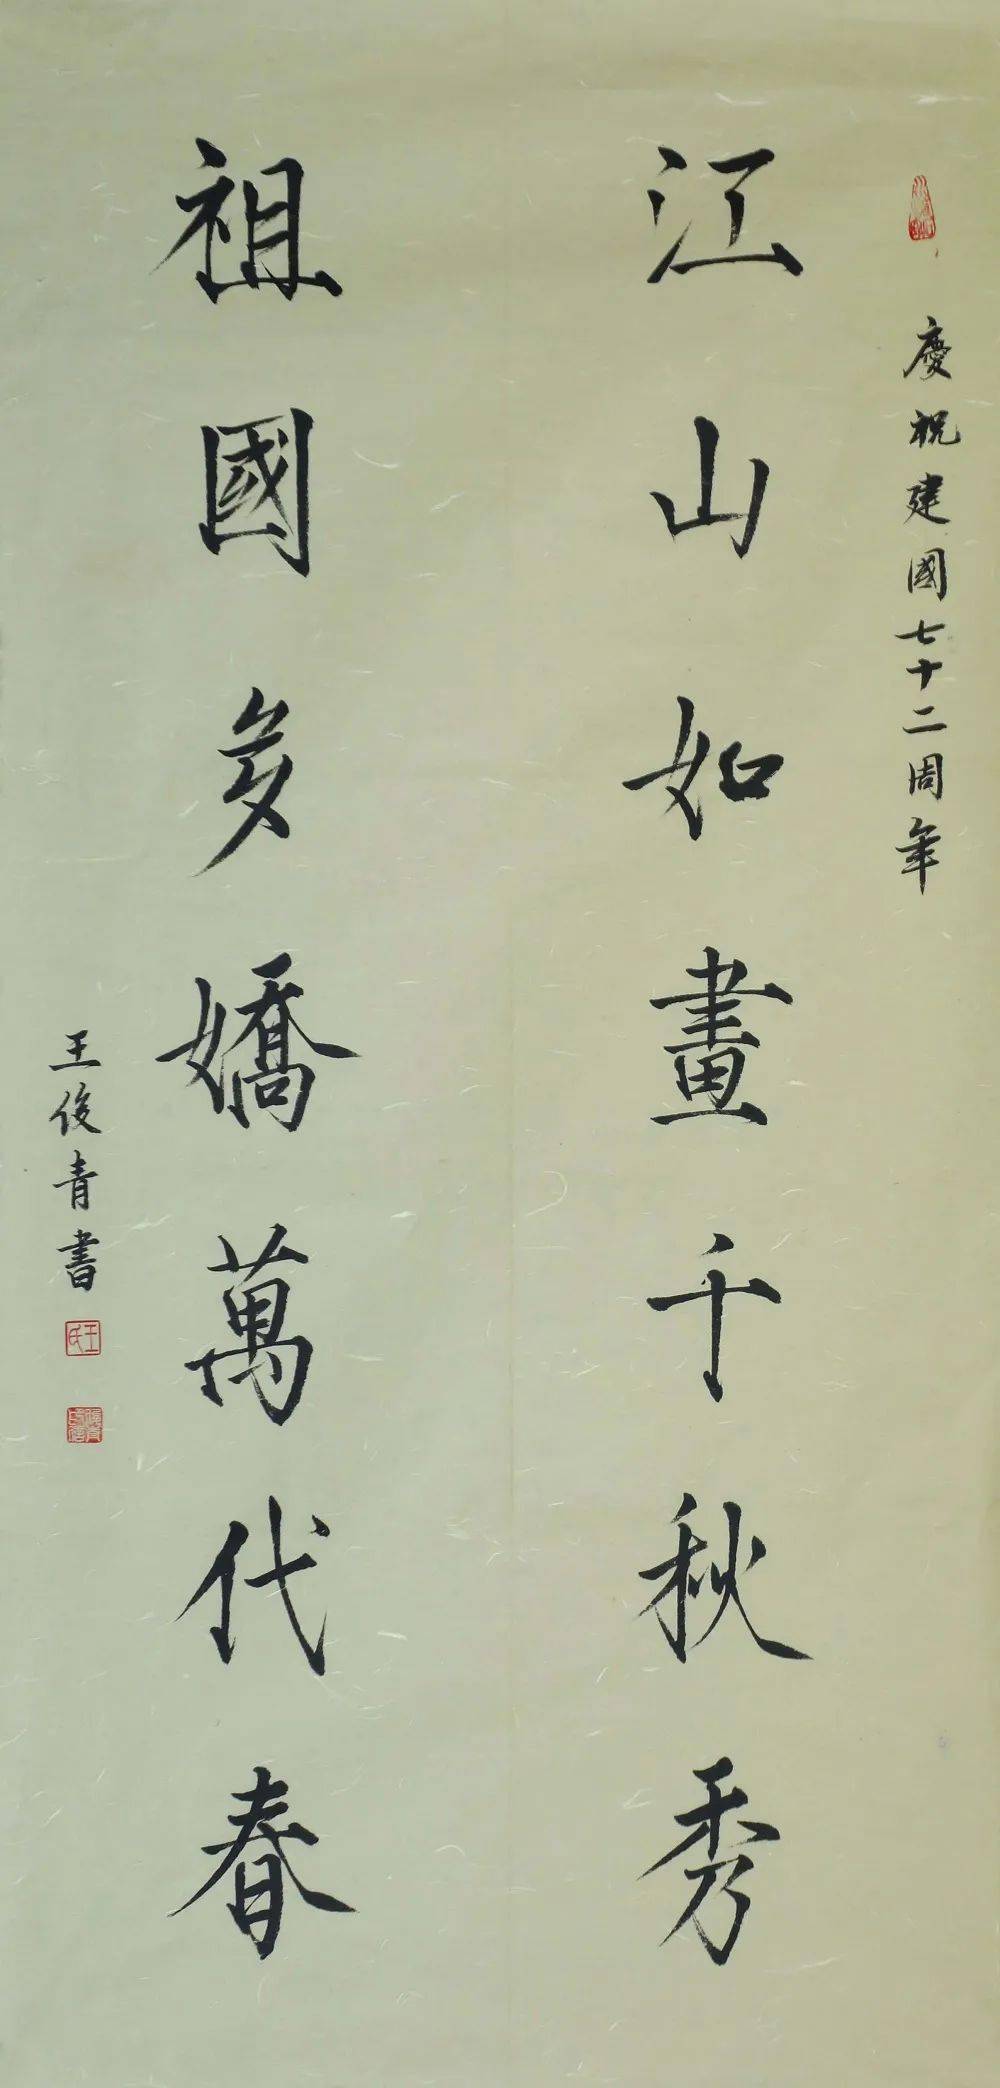 慶祝建國七十二周年
江山如畫千秋秀
祖國多嬌萬代春
王俊青書
王氏